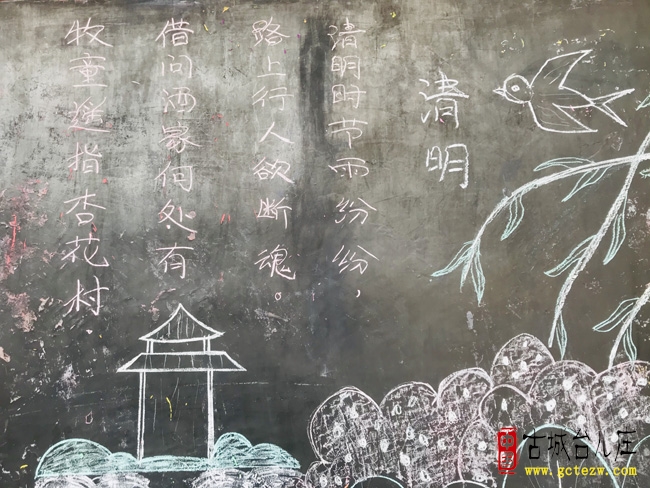 清明
清明时节雨纷纷，
路上行人欲断魂。
借问酒家何处有
牧童遥指杏花村
古城台儿庄
www.gctezw.com